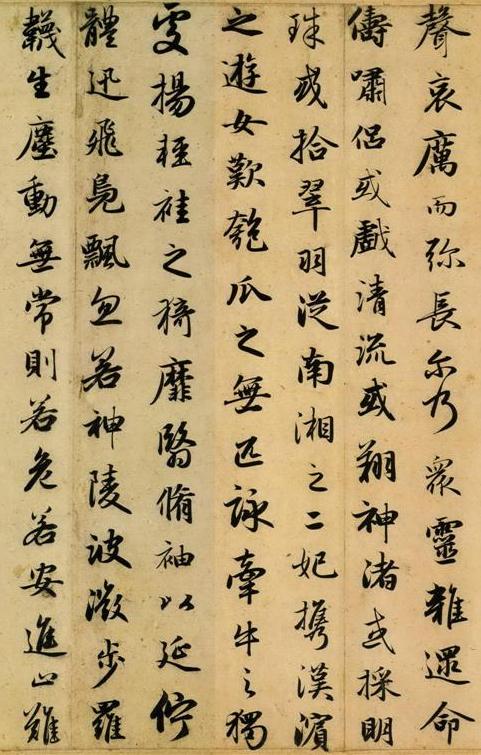 聲哀厲而弥長尔乃衆靈雜遝命
儔嘯侣或戲清流或翔神渚或採明
珠或拾翠羽従南湘之二妃携漢濱
之遊女歎匏瓜之無匹詠牽牛之獨
處揚輕袿之猗靡翳脩袖以延佇
體迅飛鳧飄忽若神陵波微步羅
韈生塵動無常則若危若安進止難